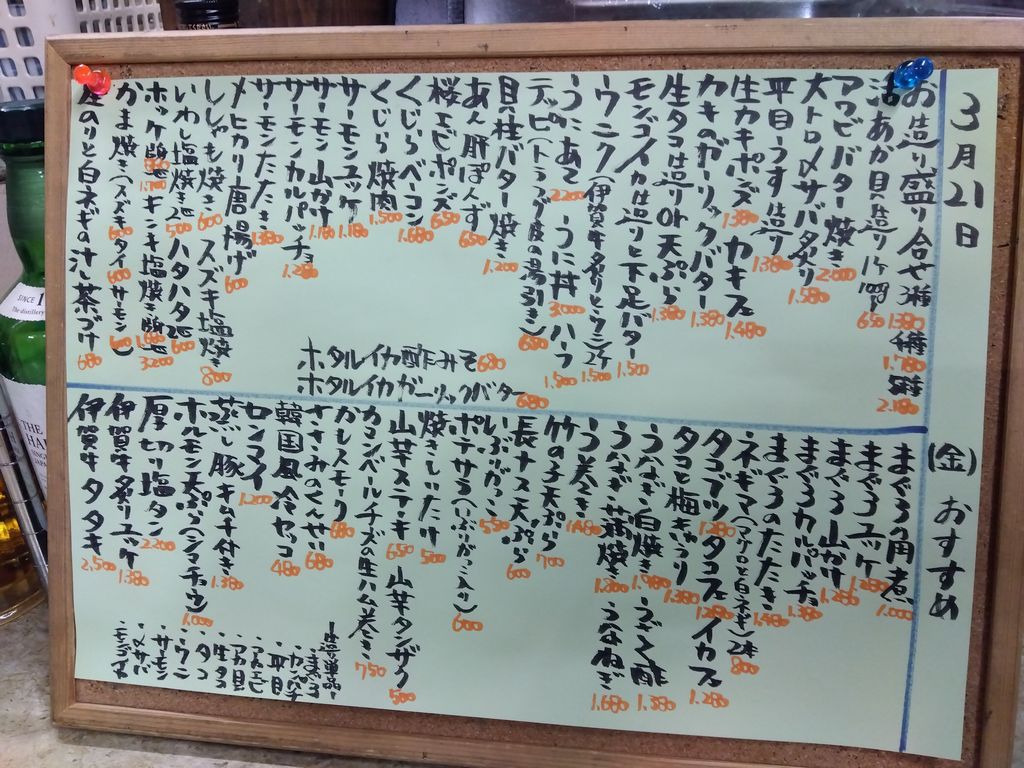 3月21日(金)おすすめ
お造り盛り合せ 3種 1.380 4種 1.780 5種 2.180
活あか貝の造り 1ケ 100g 650
アワビバター焼き 2.000
大トロ〆サバ炙り 1.580
平目うす造り 1.380
生カキポンズ 1.380 カキフライ 1.480
カキのガーリックバター 1.380
生タコ造りor天ぷら 1.380
モンゴイカ造りと下足バター 1.500
ウニク(伊賀牛炙りとウニ)2ケ 1.500
うにあて 2200 うに丼 3.000 ハーフ 1.500
テッピ(トラフグ皮の湯引き) 680
貝の柱バター焼き 1.200
あん肝ぽんず 650
桜エビポンズ 650
くじらベーコン 1.680
くじら焼肉 1.500
サーモンユッケ 1.180
サーモン山かけ 1.180
サーモンカルパッチョ 1.280
サーモンたたき 1.380
メヒカリ唐揚げ 600
ししゃも焼き 600 スズキ塩焼き 800
いわし塩焼き2匹 500 ハタハタ2匹 600
ホッケ開き キンキ塩焼き 3.200
かま焼き(スズキ タイ サーモン) 600
生のりと白ネギの汁し茶づけ 680
ホタルイカ酢みそ 680
ホタルイカガーリックバター 680
まぐろ角煮 1.000
まぐろユッケ 1.280
まぐろ山かけ 1.280
まぐろカルパッチョ 1.380
まぐろのたたき 1.480
ネギマ(マグロと白ネギ)2本 800
タコブツ 1.280 タコフライ 1.280 イカフライ 1.280
タコと梅きゅうり 1.380
うなぎ白焼き 1.980 うざく酢 1.380
うなぎ蒲焼き 1.980 うなねぎ 1.680
う巻き 1.480
竹の子天ぷら 700
長ナス天ぷら 600
いぶりがっこ 550
ポテサラ(いぶりがっこ入り) 600
焼きしいたけ 500
山芋ステーキ 650 山芋タンザク 500
カマンベールチーズの生ハム巻き 750
かもスモーク 680
ささみのくんせい 680
韓国風冷ヤッコ 480
センマイ 1.200
蒸し豚キムチ付き 1.380
ホルモン天ぷら(シマチョウ) 1.000
厚切り塩タン 2.200
伊賀牛炙りユッケ 1.380
伊賀牛タタキ 2.500
ー造り単品ー
・まぐろ
・カンパチ
・平目
・アカ貝
・生タコ
・タコ
・ウニ
・サーモン
・〆サバ
・モンゴイカ
SINCE
The distillery
THE
HA